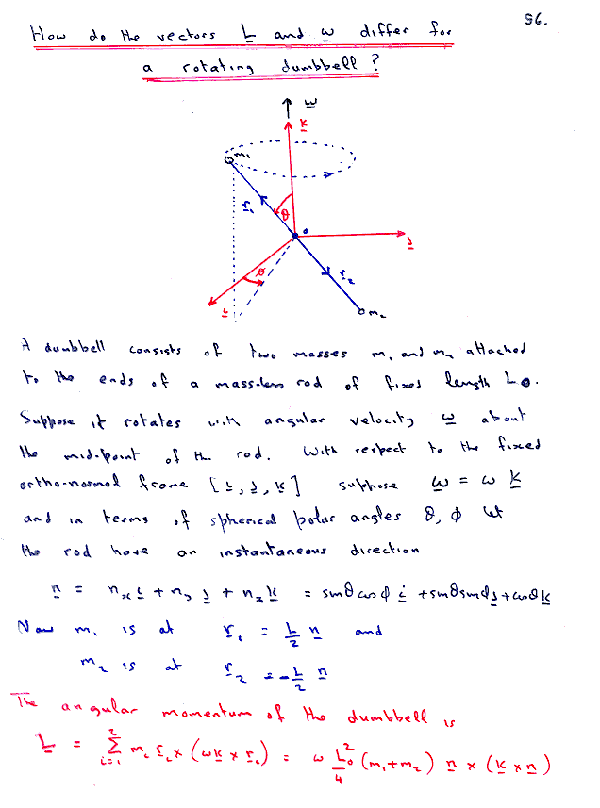 96.
How do the vectors L and ω differ for
a rotating dumbbell?
ω
k
m₁
r₁
θ
o
j
φ
r₂
i
m₂
A dumbbell consists of two masses m₁ and m₂ attached
to the ends of a massless rod of fixed length L₀.
Suppose it rotates with angular velocity ω about
the mid-point of the rod. With respect to the fixed
ortho-normal frame [i, j, k] suppose ω = ω k
and in terms of spherical polar angles θ, φ let
the rod have an instantaneous direction
n = nₓ i + n_y j + n_z k = sinθ cosφ i + sinθ sinφ j + cosθ k
Now m₁ is at r₁ = L/2 n and
m₂ is at r₂ = -L/2 n
The angular momentum of the dumbbell is
L = Σ_{i=1}^{2} mᵢ rᵢ × (ωk × rᵢ) = ω L₀²/4 (m₁+m₂) n × (k × n)